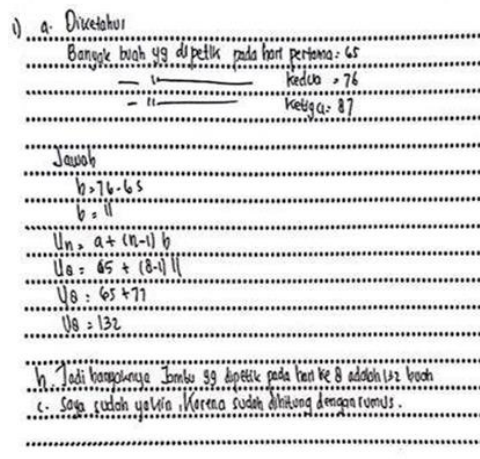 1) a. Diketahui
Banyak buah yg dipetik pada hari pertama = 65
— 11 — kedua = 76
— 11 — Ketiga = 87
Jawab
b = 76 - 65
b = 11
Un = a + (n-1) b
U8 = 65 + (8-1) 11
U8 = 65 + 77
U8 = 132
b. Jadi banyaknya Jambu yg dipetik pada hari ke 8 adalah 132 buah
c. Saya sudah yakin, Karena sudah dihitung dengan rumus.